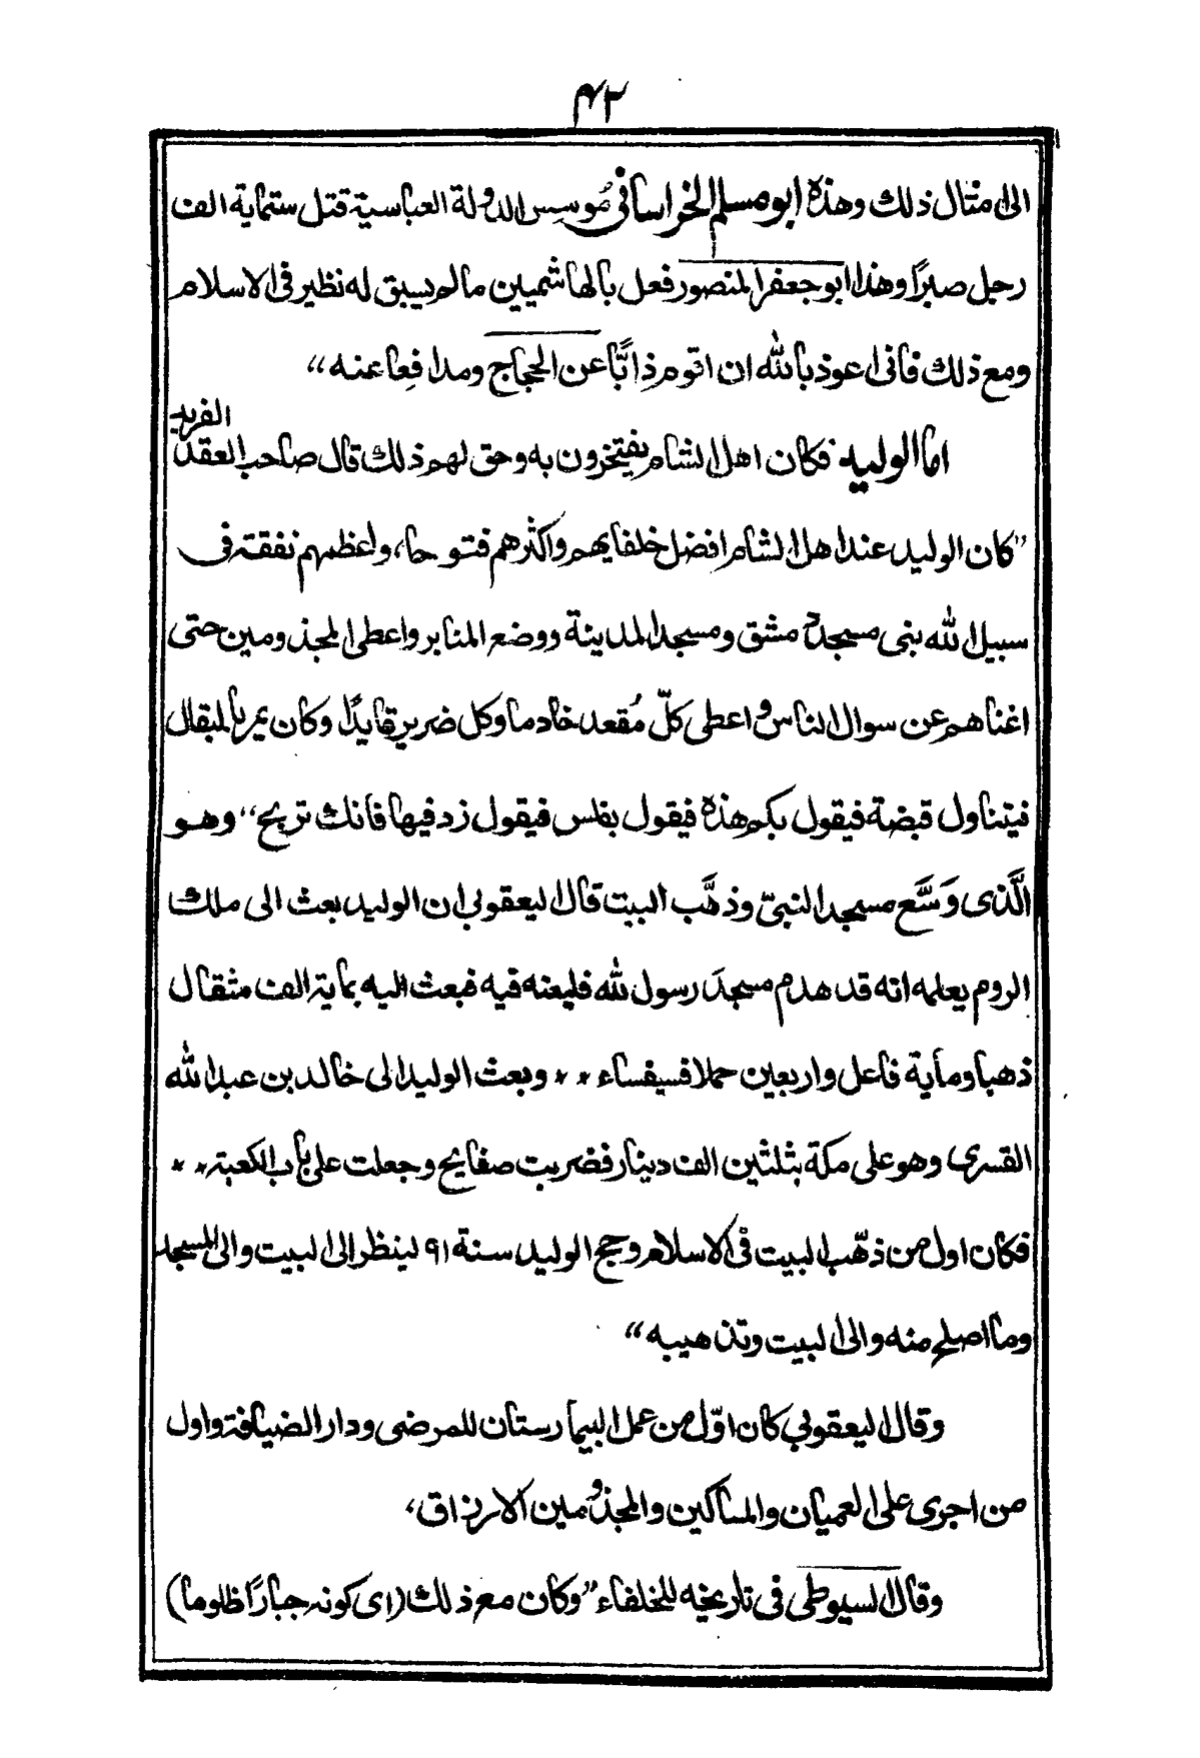 ۴۲
الى امثال ذلك وهذه ابو مسلم الخراسانى مُوسِس الدولة العباسية قتل ستماية الف
رجل صبرًا وهذا ابو جعفر المنصور فعل بالهاشميين مالم يسبق له نظير فى الاسلام
ومع ذلك فانى اعوذ بالله ان اقوم ذابًّا عن الحجاج ومدافِعا عنه“
اما الوليد فكان اهل الشام يفتخرون به وحق لهم ذلك قال صاحب العقد الفريد
”كان الوليد عند اهل الشام افضل خلفايهم واكثرهم فتوحا، واعظمهم نفقته فى
سبيل الله بنى مسجد دمشق ومسجد المدينة ووضع المنابر واعطى المجذومين حتى
اغناهم عن سوال الناس واعطى كلّ مُقعد خادما وكل ضريرٍ قايدًا وكان يمر بالمبقال
فيتناول قبضة فيقول بكم هذه فيقول بفلس فيقول زد فيها فانك تربح“ وهو
الَّذى وَسَّع مسجد النبىّ وذهَّب البيت قال اليعقوبى ان الوليد بعث الى ملك
الروم يعلمه انه قد هدم مسجدَ رسول لله فليعنه فيه فبعث اليه بماية الف مثقال
ذهبا وماية فاعل واربعين حملا فسيفساء * * وبعث الوليد الى خالد بن عبد الله
القسرى وهو على مكة بثلثين الف دينار فضربت صفايح وجعلت على باب الكعبة * *
فكان اول من ذهّب البيت فى الاسلام وحج الوليد سنة ۹۱ لينظر الى البيت والى المسجد
وما اصلح منه والى البيت وتذهيبه“
وقال اليعقوبي كان اوّل من عمل البيمارستان للمرضى ودار الضيافة واول
من اجرى على العميان والمساكين والمجذومين الارزاق،
وقال السيوطى فى تاريخه للخلفاء ”وكان مع ذلك (اى كونه جبارًا ظلوما)